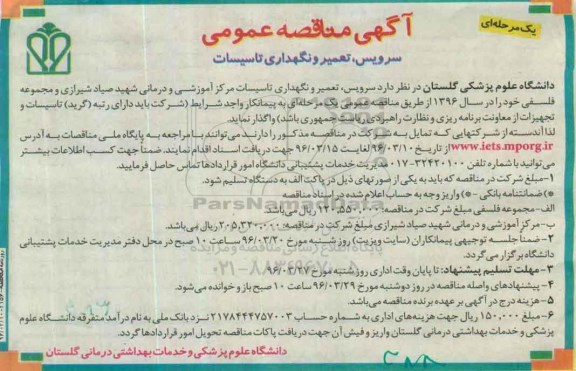 یک مرحله‌ای
آگهی مناقصه عمومی
سرویس، تعمیر و نگهداری تاسیسات
دانشگاه علوم پزشکی گلستان در نظر دارد سرویس، تعمیر و نگهداری تاسیسات مرکز آموزشی و درمانی شهید صیاد شیرازی و مجموعه
فلسفی خود را در سال ۱۳۹۶ از طریق مناقصه عمومی یک مرحله‌ای به پیمانکار واجد شرایط (شرکت باید دارای رتبه (گرید) تاسیسات و
تجهیزات از معاونت برنامه ریزی و نظارت راهبردی ریاست جمهوری باشد) واگذار نماید.
لذا آندسته از شرکتهایی که تمایل به شرکت در مناقصه مذکور را دارند می‌توانند با مراجعه به پایگاه ملی مناقصات به آدرس
www.iets.mporg.ir از تاریخ ۹۶/۰۳/۱۰ لغایت ۹۶/۰۳/۱۵ جهت دریافت اسناد اقدام نمایند. ضمناً جهت کسب اطلاعات بیشتر
می‌توانید با شماره تلفن ۳۲۴۳۰۱۰۰-۰۱۷ مدیریت خدمات پشتیبانی دانشگاه امور قراردادها تماس حاصل فرمایید.
۱-مبلغ شرکت در مناقصه که باید به یکی از صورتهای ذیل در پاکت الف به دستگاه تسلیم شود.
*) ضمانتنامه بانکی -*) واریز وجه به حساب اعلام شده در اسناد مناقصه
الف-مجموعه فلسفی مبلغ شرکت در مناقصه: ۱۲۰,۵۵۰,۰۰۰ ریال می‌باشد.
ب-مرکز آموزشی و درمانی شهید صیاد شیرازی مبلغ شرکت در مناقصه: ۲۰۵,۳۲۰,۰۰۰ ریال می‌باشد.
۲-ضمناً جلسه توجیهی پیمانکاران (سایت ویزیت) روز شنبه مورخ ۹۶/۰۳/۲۰ ساعت ۱۰ صبح در محل دفتر مدیریت خدمات پشتیبانی
دانشگاه برگزار می‌گردد.
۳-مهلت تسلیم پیشنهاد: تا پایان وقت اداری روز شنبه مورخ ۹۶/۰۳/۲۷
۴-پیشنهادهای واصله مناقصه در روز دوشنبه مورخ ۹۶/۰۳/۲۹ ساعت ۱۰ صبح باز و خوانده می‌شود.
۵-هزینه درج در آگهی بر عهده برنده مناقصه می‌باشد.
۶-مبلغ ۱۵۰,۰۰۰ ریال جهت هزینه‌های اداری به شماره حساب ۲۱۷۸۴۴۴۷۵۷۰۰۳ نزد بانک ملی به نام درآمد متفرقه دانشگاه علوم
پزشکی و خدمات بهداشتی درمانی گلستان واریز و فیش آن جهت دریافت پاکات مناقصه تحویل امور قراردادها گردد.
دانشگاه علوم پزشکی و خدمات بهداشتی درمانی گلستان
ParsNamadData
پایگاه اطلاع رسانی مناقصه و مزایده
۰۲۱-۸۸۳۴۹۶۷۰-۵